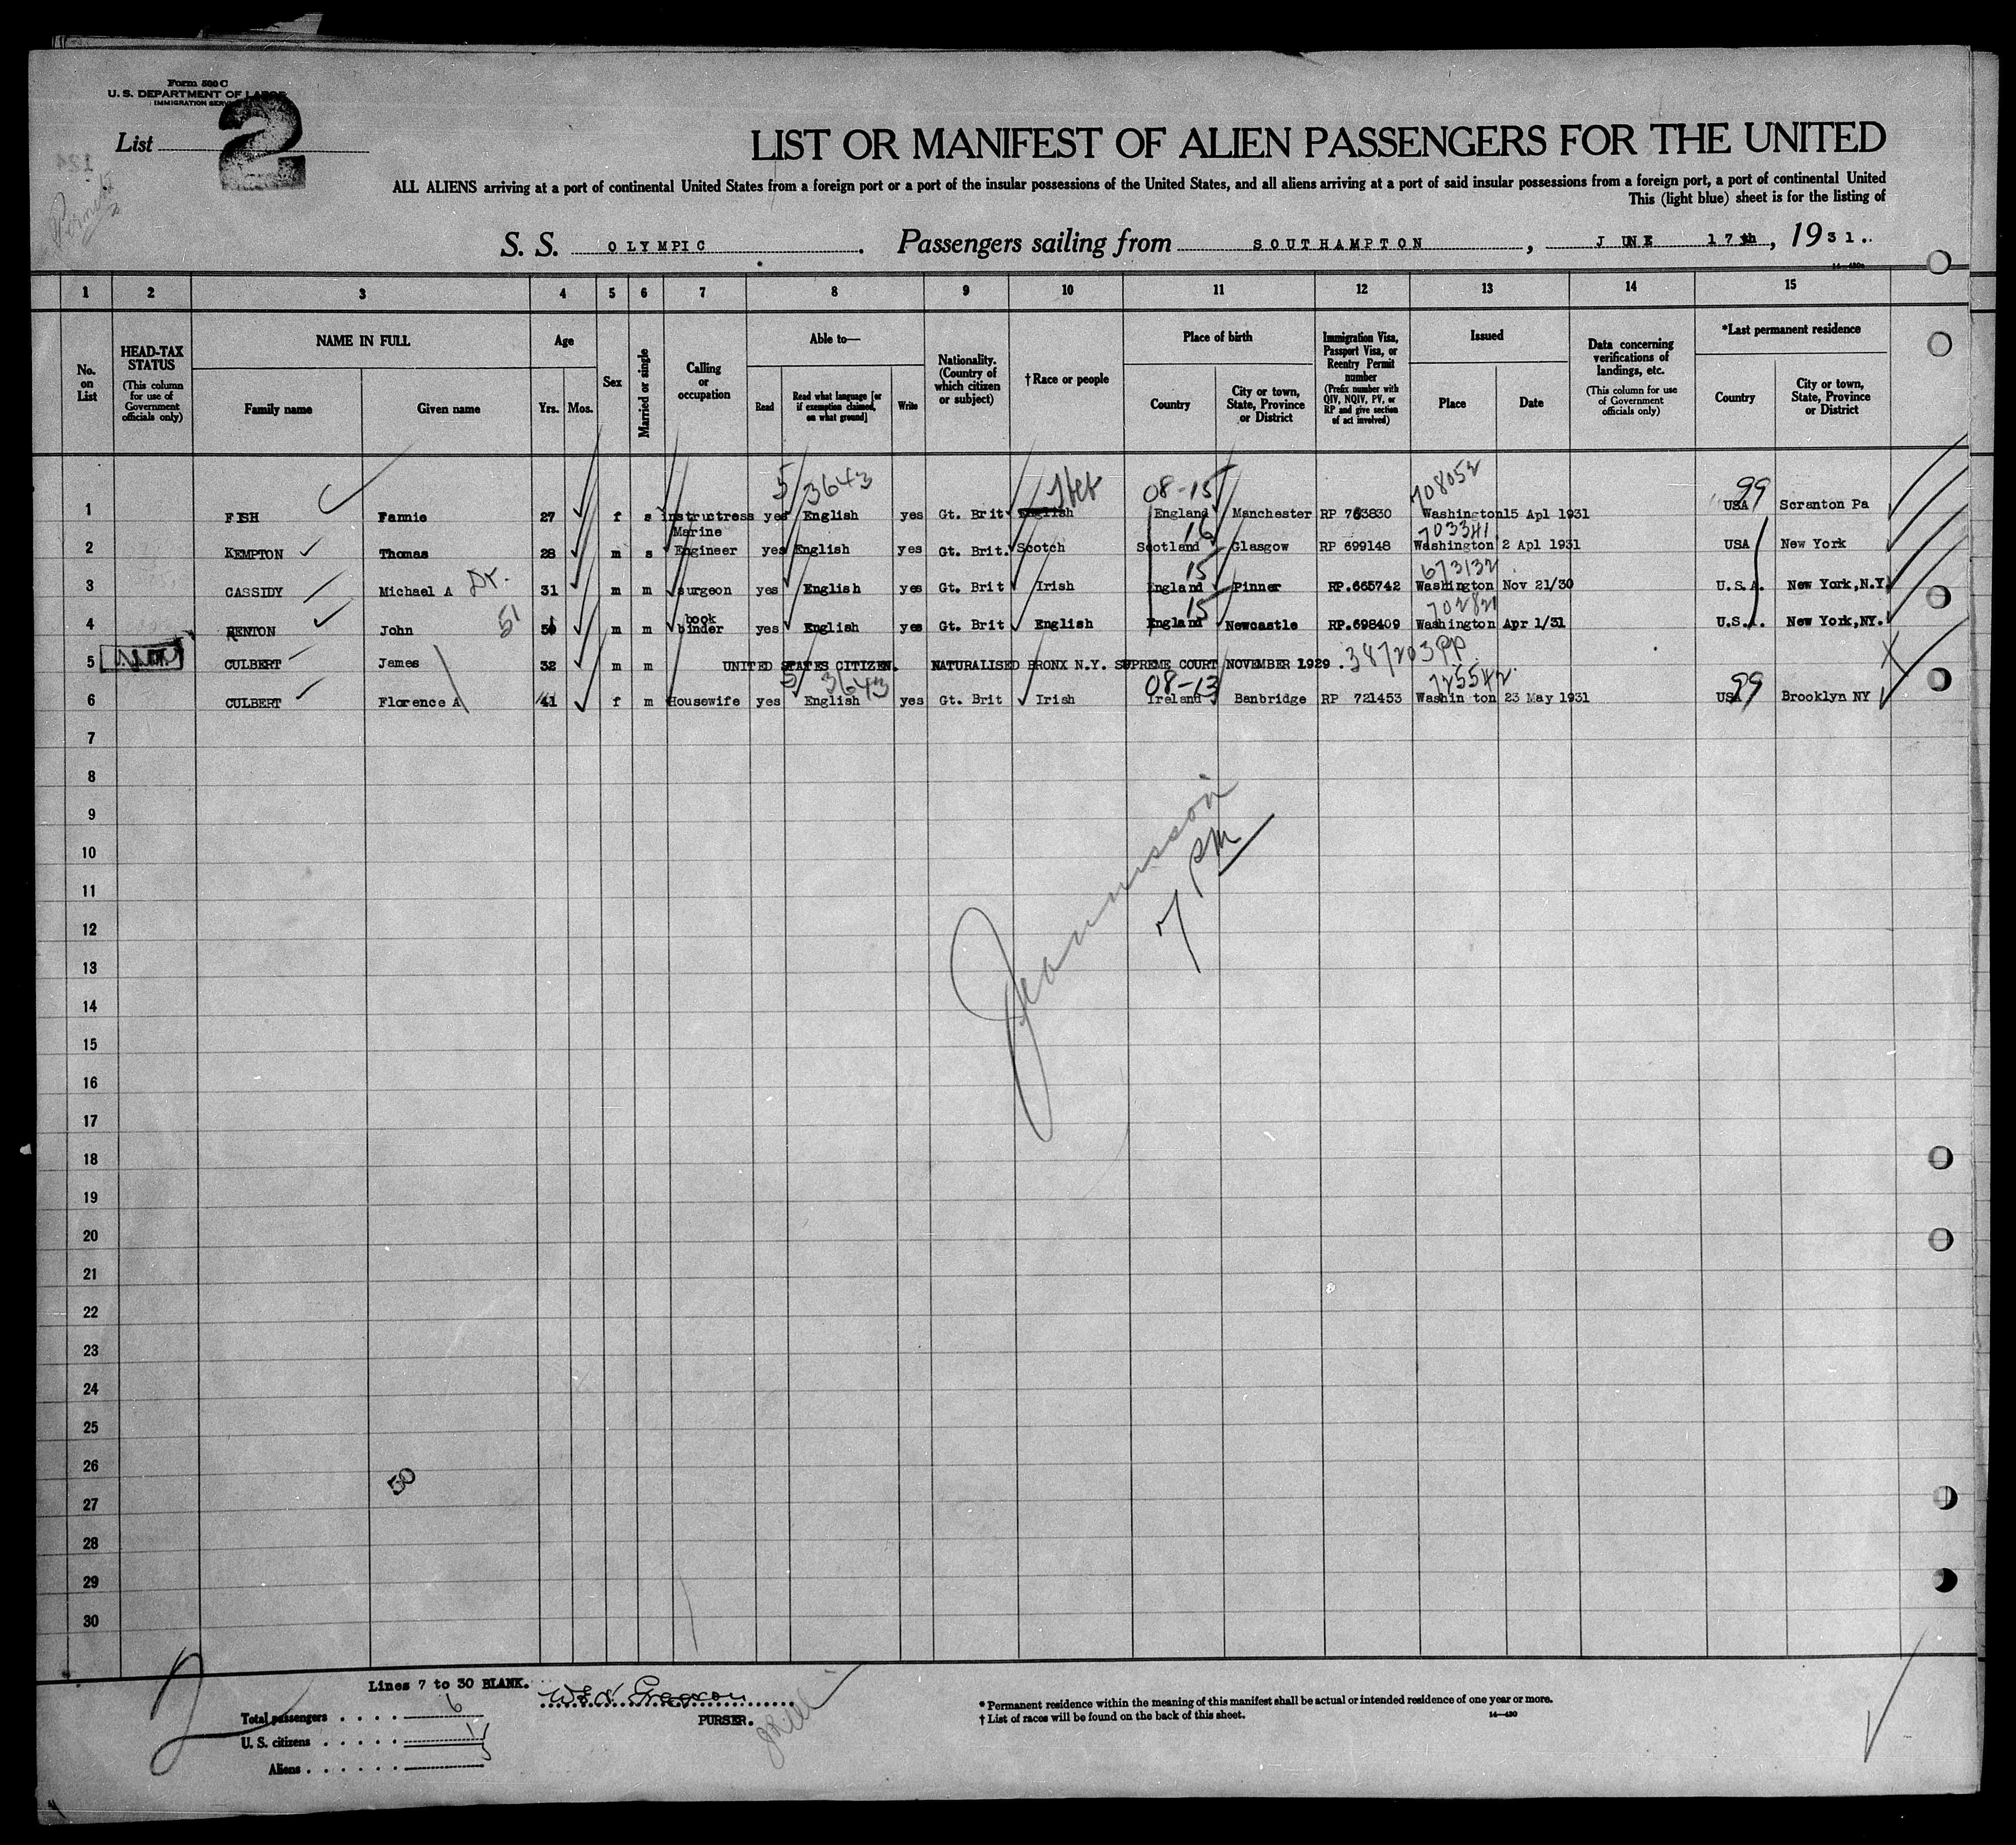 Form 500 C
U. S. DEPARTMENT OF LABOR
IMMIGRATION SERVICE
List 2
LIST OR MANIFEST OF ALIEN PASSENGERS FOR THE UNITED
ALL ALIENS arriving at a port of continental United States from a foreign port or a port of the insular possessions of the United States, and all aliens arriving at a port of said insular possessions from a foreign port, a port of continental United
This (light blue) sheet is for the listing of
S. S. OLYMPIC. Passengers sailing from SOUTHAMPTON, JUNE 17th, 1931.
14-430
1 2 3 4 5 6 7 8 9 10 11 12 13 14 15
No. on List
HEAD-TAX STATUS (This column for use of Government officials only)
NAME IN FULL Family name Given name
Age Yrs. Mos.
Sex
Married or single
Calling or occupation
Able to— Read Read what language [or if exemption claimed, on what ground] Write
Nationality. (Country of which citizen or subject)
† Race or people
Place of birth Country City or town, State, Province or District
Immigration Visa, Passport Visa, or Reentry Permit number (Prefix number with QIV, NQIV, PV, or RP and give section of act involved)
Issued Place Date
Data concerning verifications of landings, etc. (This column for use of Government officials only)
*Last permanent residence Country City or town, State, Province or District
5 3643 Heb 08-15 708052 99
1 FISH Fannie 27 f s instructress yes English yes Gt. Brit English England Manchester RP 763830 Washington 15 Apl 1931 USA Scranton Pa
16 703341
2 KEMPTON Thomas 28 m s Marine Engineer yes English yes Gt. Brit. Scotch Scotland Glasgow RP 699148 Washington 2 Apl 1931 USA New York
15 673132
3 CASSIDY Michael A Dr. 31 m m surgeon yes English yes Gt. Brit Irish England Pinner RP.665742 Washington Nov 21/30 U.S.A. New York,N.Y.
51 15 70282
4 RENTON John 50 m m book binder yes English yes Gt. Brit English England Newcastle RP.698409 Washington Apr 1/31 U.S.A. New York,NY.
5 CULBERT James 32 m m UNITED STATES CITIZEN. NATURALISED BRONX N.Y. SUPREME COURT NOVEMBER 1929. 387203 PP
5 3643 08-13 725542 99
6 CULBERT Florence A 41 f m Housewife yes English yes Gt. Brit Irish Ireland Banbridge RP 721453 Washin ton 23 May 1931 USA Brooklyn NY
7
8
9
10
11
12
13
14
15
16
17
18
19
20
21
22
23
24
25
26
27
28
29
30
7 PM
50
2
Lines 7 to 30 BLANK.
Total passengers . . . . 6
U. S. citizens . . . . . 1
Aliens . . . . . . 5
PURSER.
* Permanent residence within the meaning of this manifest shall be actual or intended residence of one year or more.
† List of races will be found on the back of this sheet.
14-430